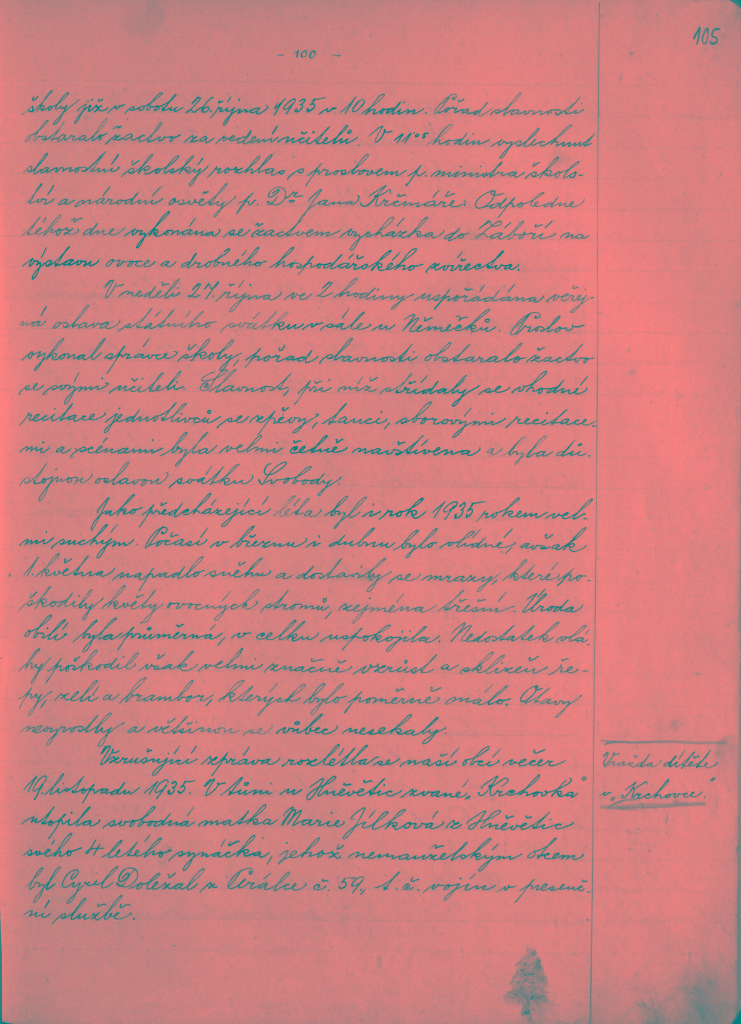 105
- 100 -
školy již v sobotu 26. října 1935 v 10 hodin. Pořad slavnosti
obstaralo žactvo za vedení učitelů. V 11°⁵ hodin vyslechnut
slavnostní školský rozhlas s proslovem p. ministra škols-
tví a národní osvěty p. Dr Jana Krčmáře. Odpoledne
téhož dne vykonána se žactvem vycházka do Záboří na
výstavu ovoce a drobného hospodářského zvířectva.
V neděli 27. října ve 2 hodiny uspořádána veřej
ná oslava státního svátku v sále u Němečků. Proslov
vykonal správce školy, pořad slavnosti obstaralo žactvo
se svými učiteli. Slavnost, při níž střídaly se vhodné
recitace jednotlivců se zpěvy, tanci, sborovými recitace-
mi a scénami, byla velmi četně navštívena a byla dů-
stojnou oslavou svátku Svobody.
Jako předcházející léta byl i rok 1935 rokem vel-
mi suchým. Počasí v březnu i dubnu bylo vlídné, avšak
1. května napadlo sněhu a dostavily se mrazy, které po-
škodily květy ovocných stromů, zejména třešní. Úroda
obilí byla průměrná, v celku uspokojila. Nedostatek vlá-
hy poškodil však velmi značně vzrůst a sklizeň ře-
py, zelí a brambor, kterých bylo poměrně málo. Otavy
nevyrostly a většinou se vůbec nesekaly.
Vzrušující zpráva rozlétla se naší obcí večer
19. listopadu 1935. V tůni u Hněvětic zvané „Krchovka"
utopila svobodná matka Marie Jílková z Hněvětic
svého 4 letého synáčka, jehož nemanželským otcem
byl Cyril Doležal z Perálce č. 59, t. č. vojín v presenč-
ní službě.
Vražda dítěte
v „Krchovce."